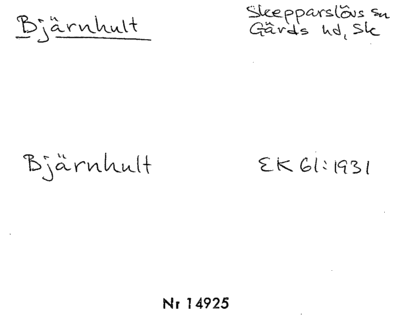 Bjärnhult
Skepparslövs sn
Gärds hd, Sk
Bjärnhult
EK 61:1931
Nr 14925